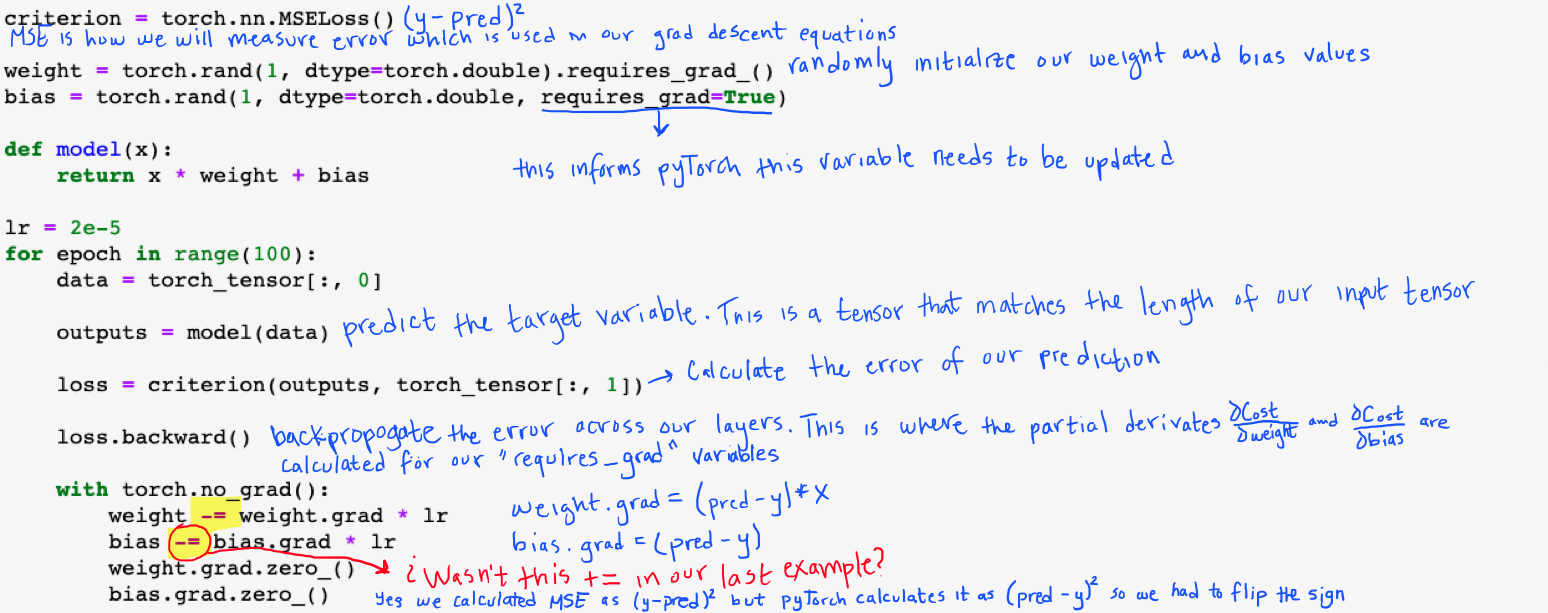 criterion = torch.nn.MSELoss() (y-pred)²
MSE is how we will measure error which is used in our grad descent equations
weight = torch.rand(1, dtype=torch.double).requires_grad_() randomly initialize our weight and bias values
bias = torch.rand(1, dtype=torch.double, requires_grad=True)
def model(x):
this informs pyTorch this variable needs to be updated
return x * weight + bias
lr = 2e-5
for epoch in range(100):
data = torch_tensor[:, 0]
outputs = model(data) predict the target variable. This is a tensor that matches the length of our input tensor
loss = criterion(outputs, torch_tensor[:, 1]) → Calculate the error of our prediction
loss.backward() backpropogate the error across our layers. This is where the partial derivates ∂Cost/∂weight and ∂Cost/∂bias are
calculated for our "requires_grad" variables
with torch.no_grad():
weight -= weight.grad * lr weight.grad = (pred-y)*x
bias -= bias.grad * lr bias.grad = (pred-y)
weight.grad.zero_() ¿Wasn't this += in our last example?
bias.grad.zero_() Yes we calculated MSE as (y-pred)² but pyTorch calculates it as (pred-y)² so we had to flip the sign